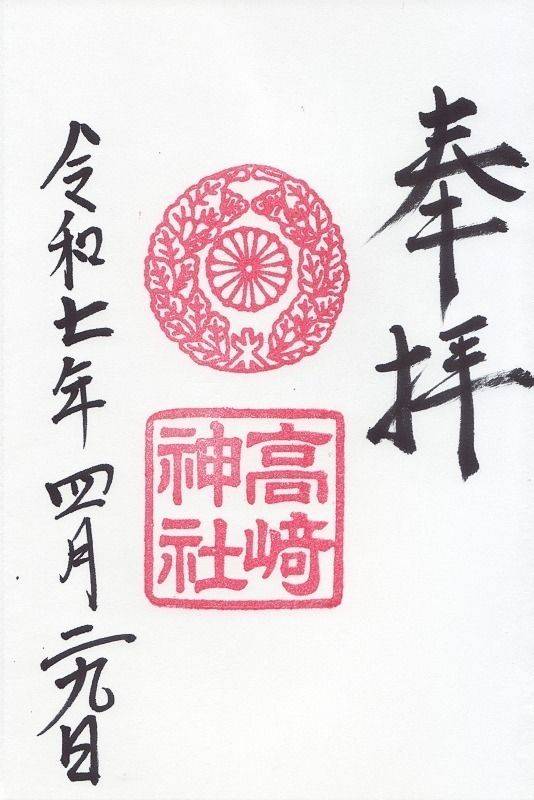 奉拝
高崎
神社
令和七年四月二九日